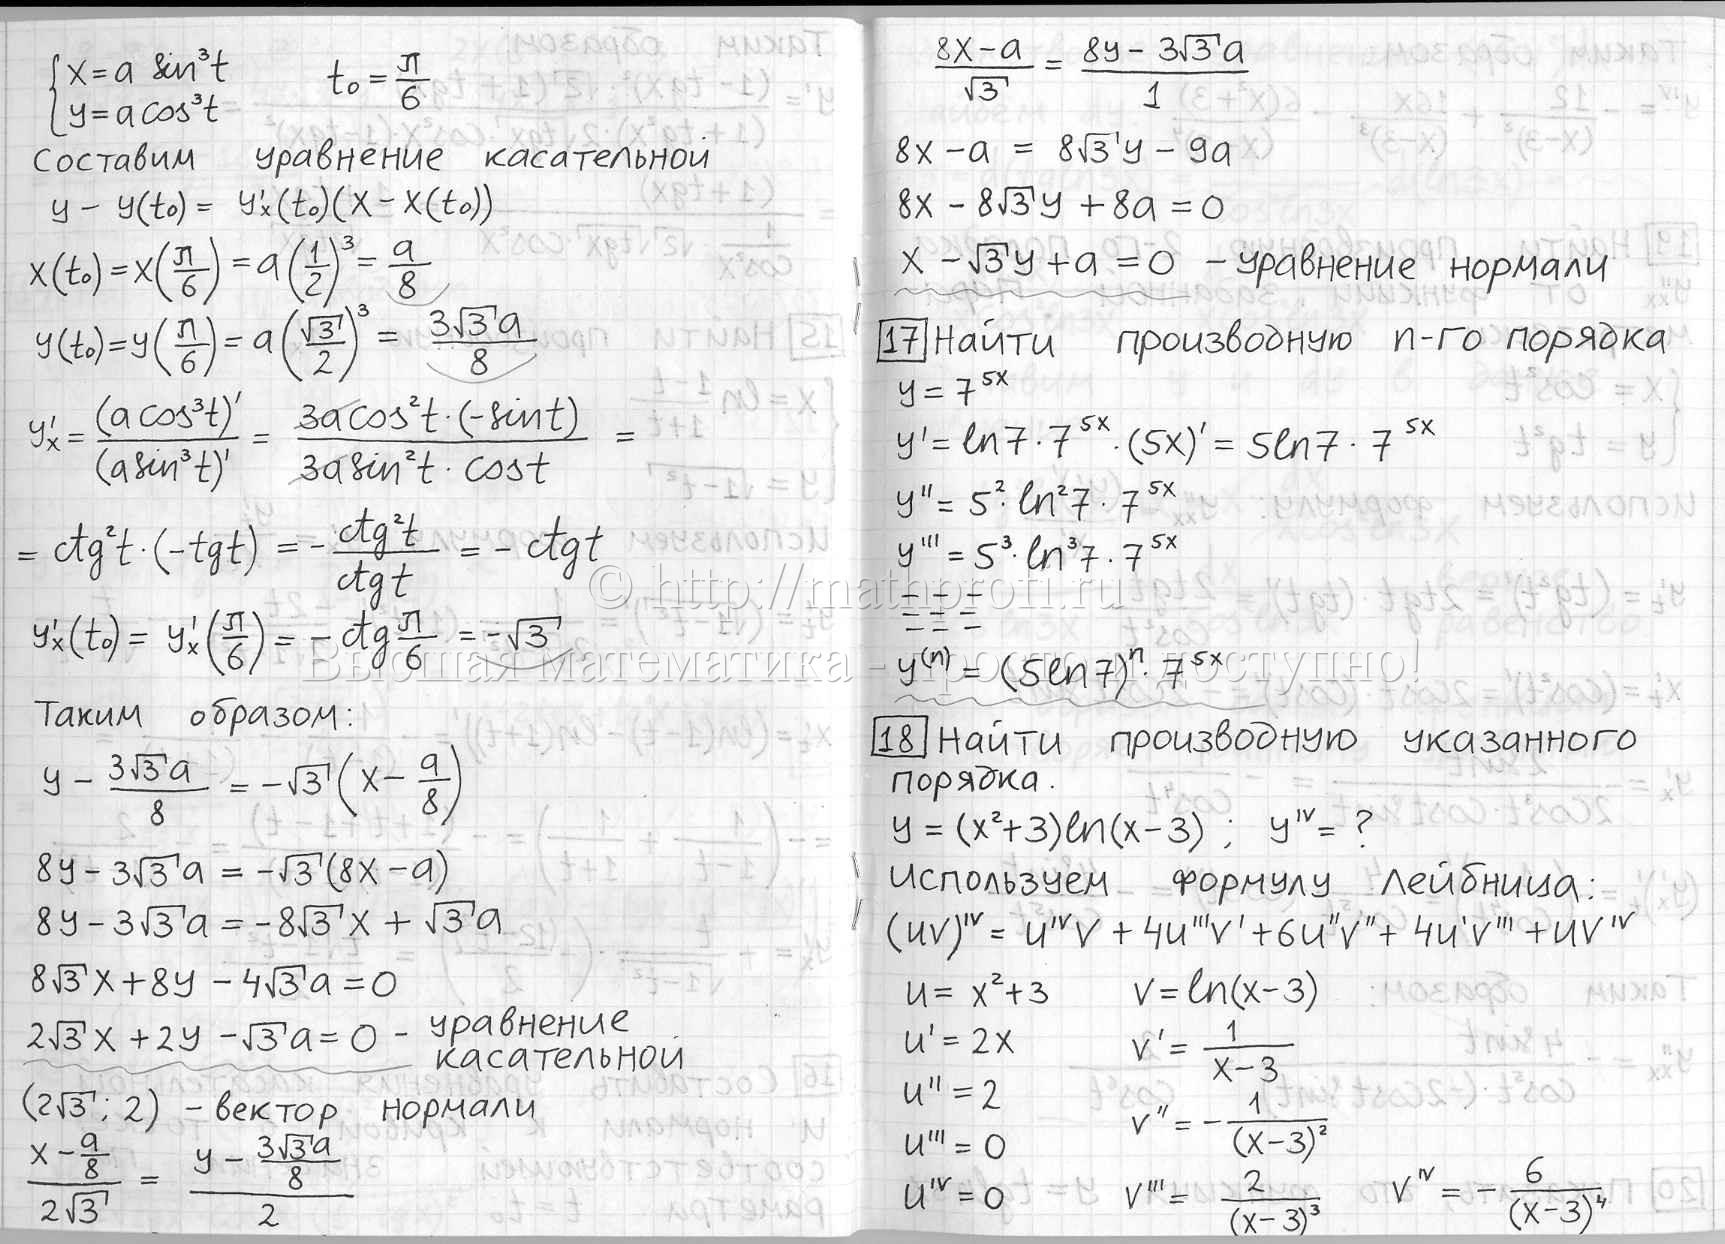 { x = a sin³t
{ y = a cos³t      t₀ = π/6
Составим уравнение касательной
y - y(t₀) = y'ₓ(t₀)(x - x(t₀))
x(t₀) = x(π/6) = a(1/2)³ = a/8
y(t₀) = y(π/6) = a(√3/2)³ = 3√3a/8
y'ₓ = (a cos³t)'/(a sin³t)' = 3a cos²t·(-sint)/3a sin²t·cost =
= ctg²t·(-tgt) = - ctg²t/ctgt = - ctgt
y'ₓ(t₀) = y'ₓ(π/6) = - ctg π/6 = -√3
Таким образом:
y - 3√3a/8 = -√3(x - a/8)
8y - 3√3a = -√3(8x - a)
8y - 3√3a = -8√3x + √3a
8√3x + 8y - 4√3a = 0
2√3x + 2y - √3a = 0 - уравнение
касательной
(2√3; 2) - вектор нормали
(x - a/8)/2√3 = (y - 3√3a/8)/2
(8x - a)/√3 = (8y - 3√3a)/1
8x - a = 8√3y - 9a
8x - 8√3y + 8a = 0
x - √3y + a = 0 - уравнение нормали
17 Найти производную n-го порядка
y = 7⁵ˣ
y' = ln7·7⁵ˣ·(5x)' = 5ln7·7⁵ˣ
y'' = 5²·ln²7·7⁵ˣ
y''' = 5³·ln³7·7⁵ˣ
y⁽ⁿ⁾ = (5ln7)ⁿ·7⁵ˣ
18 Найти производную указанного
порядка.
y = (x²+3)ln(x-3); yᴵⱽ = ?
Используем формулу Лейбница:
(uv)ᴵⱽ = uᴵⱽv + 4u'''v' + 6u''v'' + 4u'v''' + uvᴵⱽ
u = x²+3      v = ln(x-3)
u' = 2x      v' = 1/(x-3)
u'' = 2      v'' = - 1/(x-3)²
u''' = 0
uᴵⱽ = 0      v''' = 2/(x-3)³      vᴵⱽ = - 6/(x-3)⁴
© http://mathprofi.ru
Высшая математика - просто и доступно!